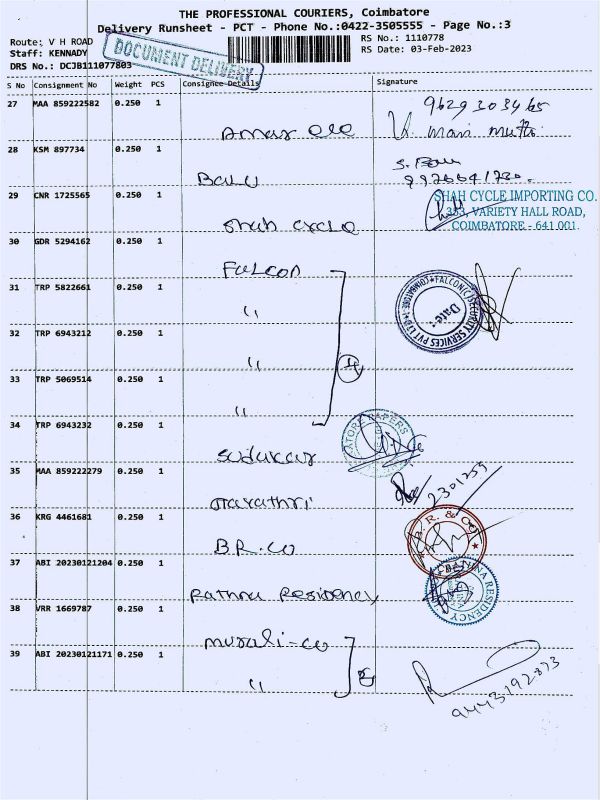 THE PROFESSIONAL COURIERS, Coimbatore
Delivery Runsheet - PCT - Phone No.:0422-3505555 - Page No.:3
Route: V H ROAD
RS No.: 1110778
Staff: KENNADY
RS Date: 03-Feb-2023
DRS No.: DCJB111077803
DOCUMENT DELIVERY
S No Consignment No Weight PCS Consignee Details Signature
27 MAA 859222582 0.250 1
9629303465
28 KSM 897734 0.250 1
Balu
29 CNR 1725565 0.250 1
SHAH CYCLE IMPORTING CO.
VARIETY HALL ROAD,
COIMBATORE - 641 001.
Shah cycle
30 GDR 5294162 0.250 1
Falcon
31 TRP 5822661 0.250 1
FALCON(C)SECURITY SERVICES PVT LTD
Date:
"
32 TRP 6943212 0.250 1
"
33 TRP 5069514 0.250 1
"
34 TRP 6943232 0.250 1
PAPERS
35 MAA 859222279 0.250 1
2301253
36 KRG 4461681 0.250 1
B.R. & CO
B.R.Co
37 ABI 20230121204 0.250 1
RESIDENCY
Rathna Residency
38 VRR 1669787 0.250 1
Murali-co
39 ABI 20230121171 0.250 1
"